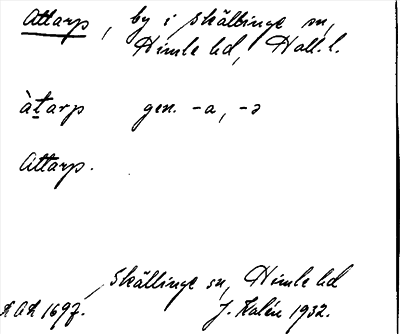 Attarp, by i Skällinge sn,
Himle hd, Hall. l.
àt̲arp gen. -a, -ə
Attarp.
Skällinge sn, Himle hd
OAU 1697. J. Kalén 1932.